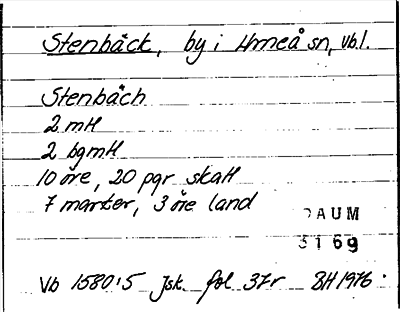 Stenbäck, by i Umeå sn, Vb l.
Stenbäch
2 mtl
2 bgmtl
10 öre, 20 pgr skatt
7 marker, 3 öre land
DAUM
3169
Vb 1580:5 Jsk. fol 37r BH 1976